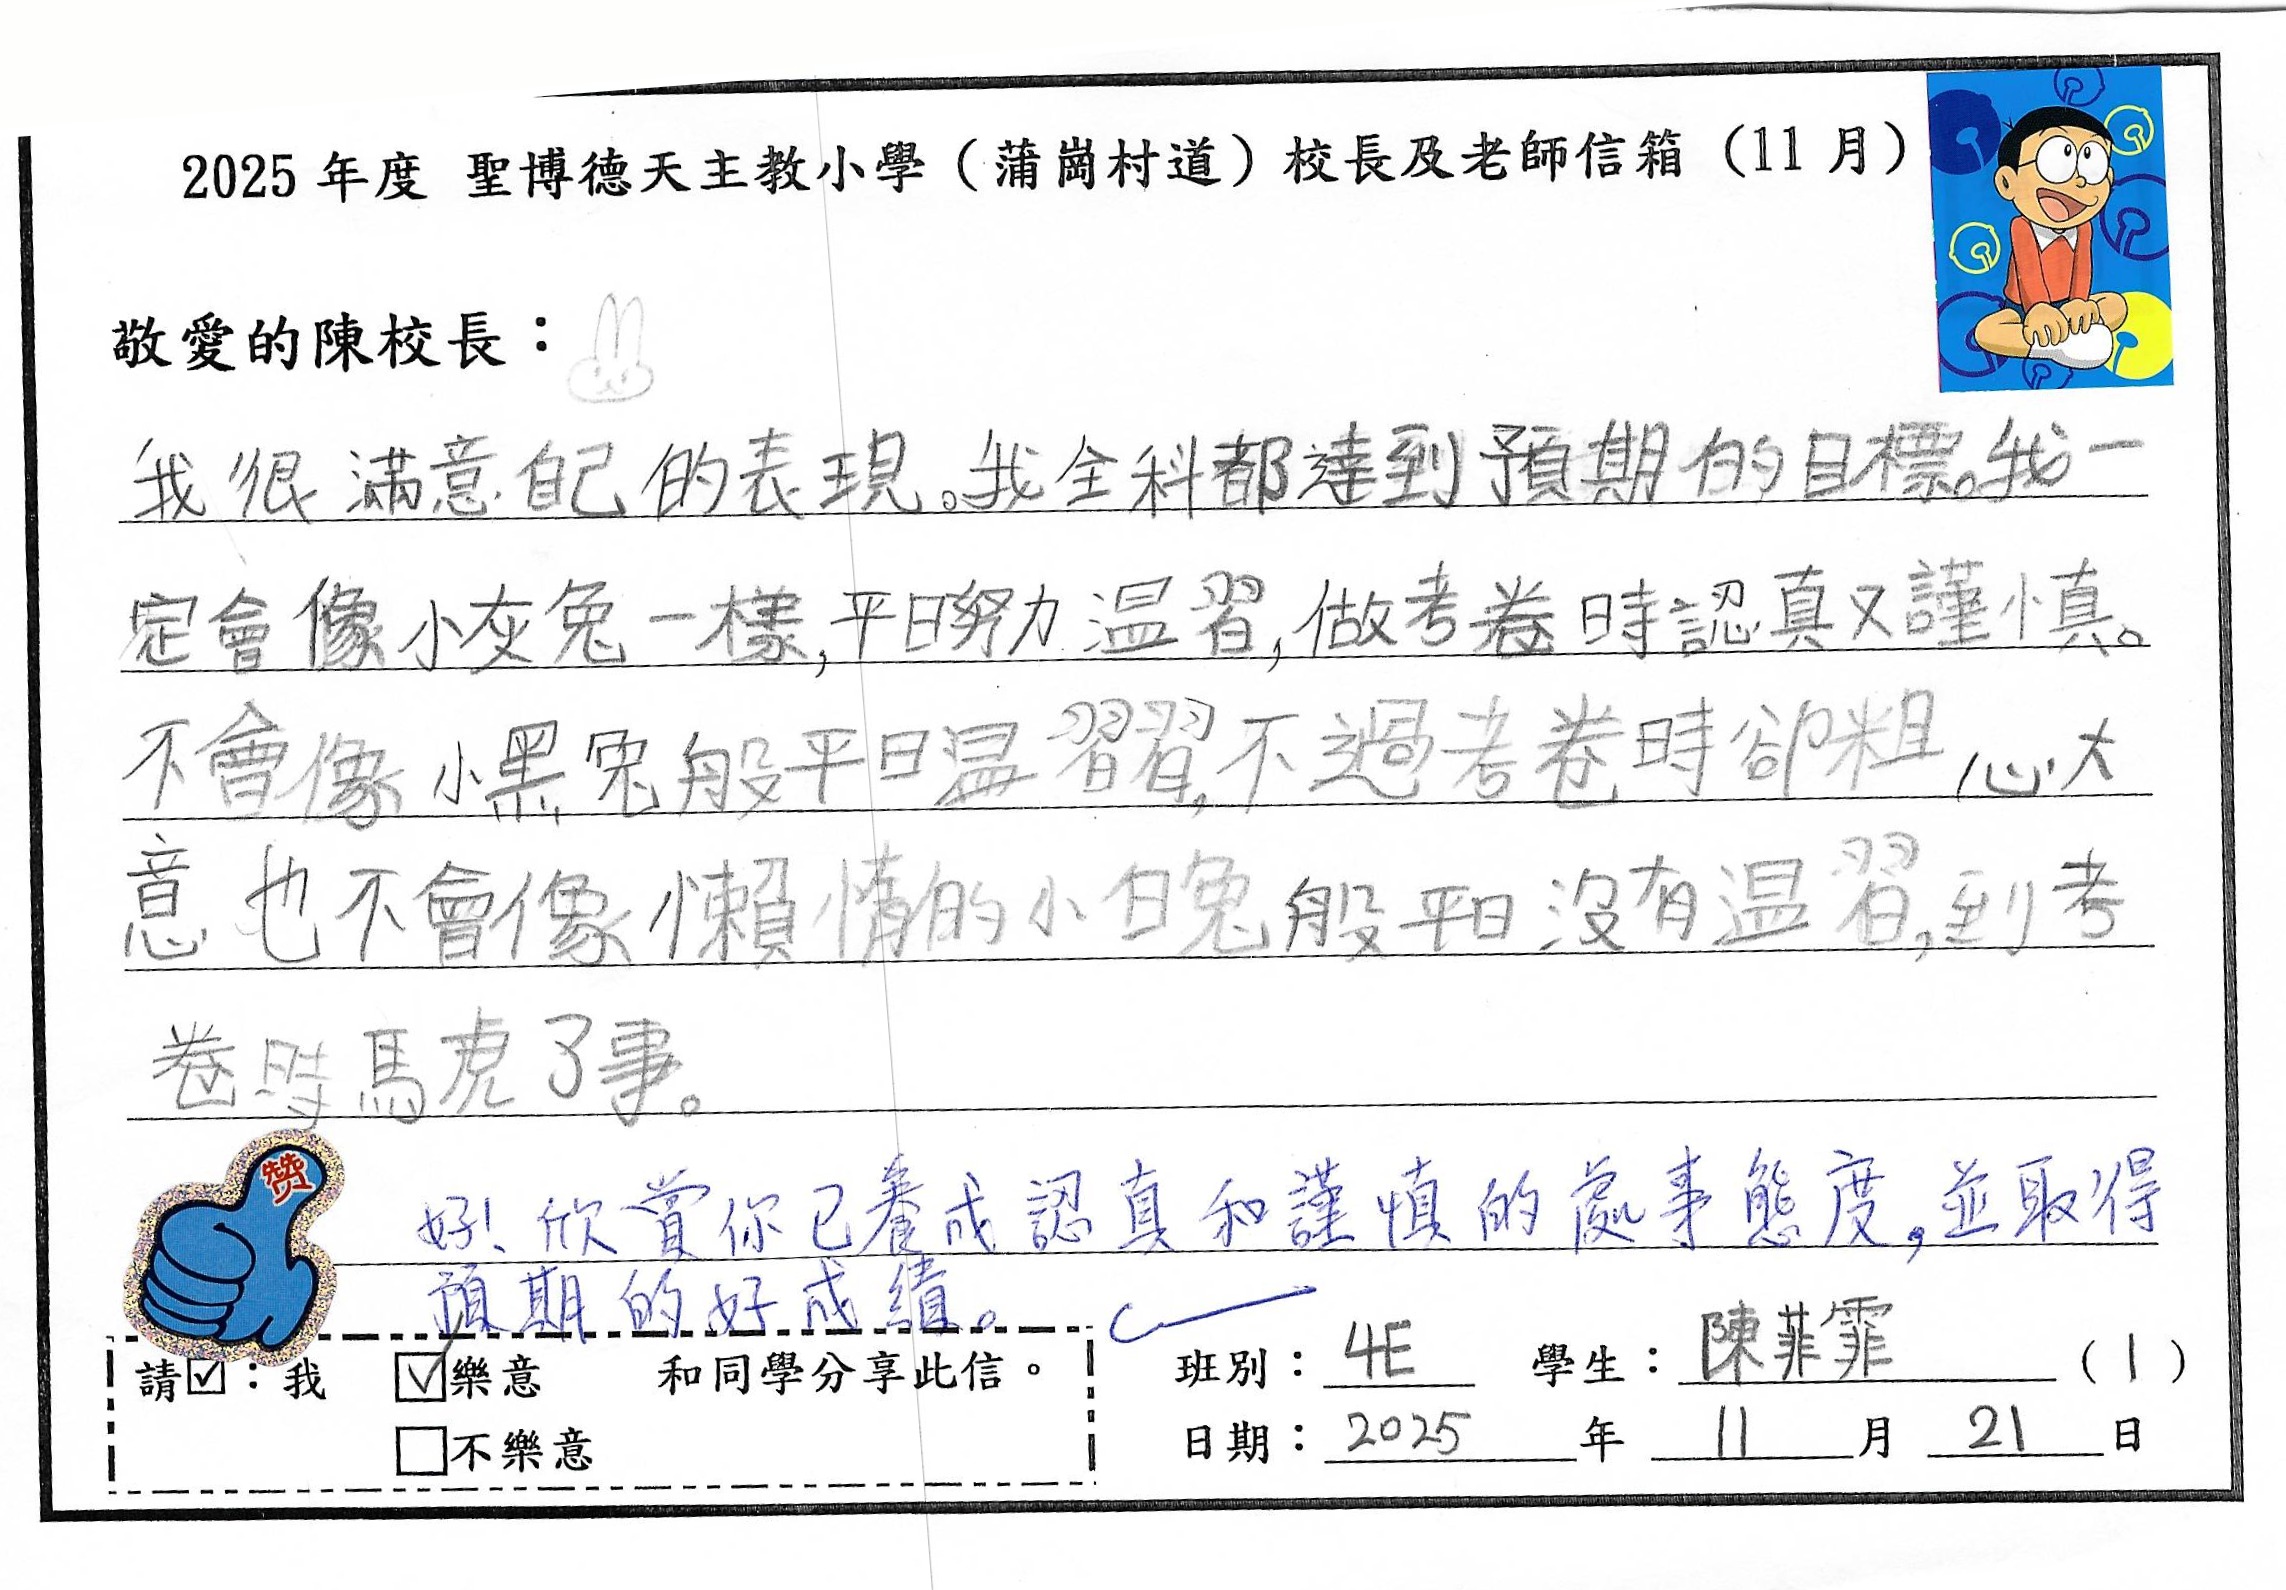 2025 年度 聖博德天主教小學（蒲崗村道）校長及老師信箱（11 月）
敬愛的陳校長：
我很滿意自己的表現。我全科都達到預期的目標。我一
定會像小灰兔一樣,平日努力溫習,做考卷時認真又謹慎。
不會像小黑兔般平日溫習習,不過考卷時卻粗心大
意也不會像懶惰的小白兔般平日沒有溫習,到考
卷時馬虎了事。
赞
好!欣賞你已養成認真和謹慎的處事態度,並取得
預期的好成績。
請☑：我 ☑樂意 和同學分享此信。
□不樂意
班別：4E 學生：陳菲霏（1）
日期：2025 年 11 月 21 日